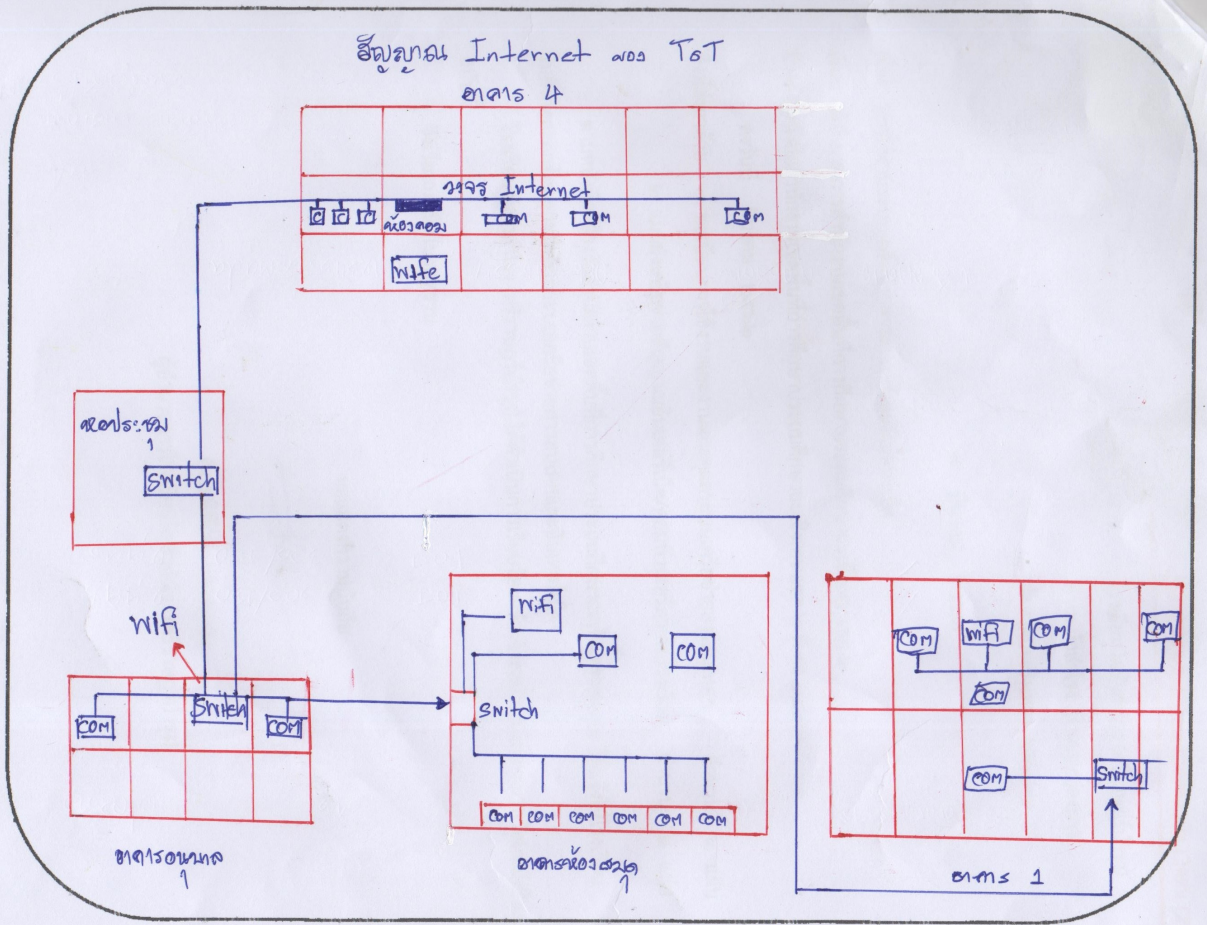 สัญญาณ Internet ของ ToT
อาคาร 4
วงจร Internet
C C C COM COM COM
ห้องคอม
Wife
หอประชุม
Switch
Wifi
COM Switch COM
อาคารอนุบาล
Wifi
COM COM
Switch
COM COM COM COM COM COM
อาคารห้องสมุด
COM Wifi COM COM
COM
COM Switch
อาคาร 1